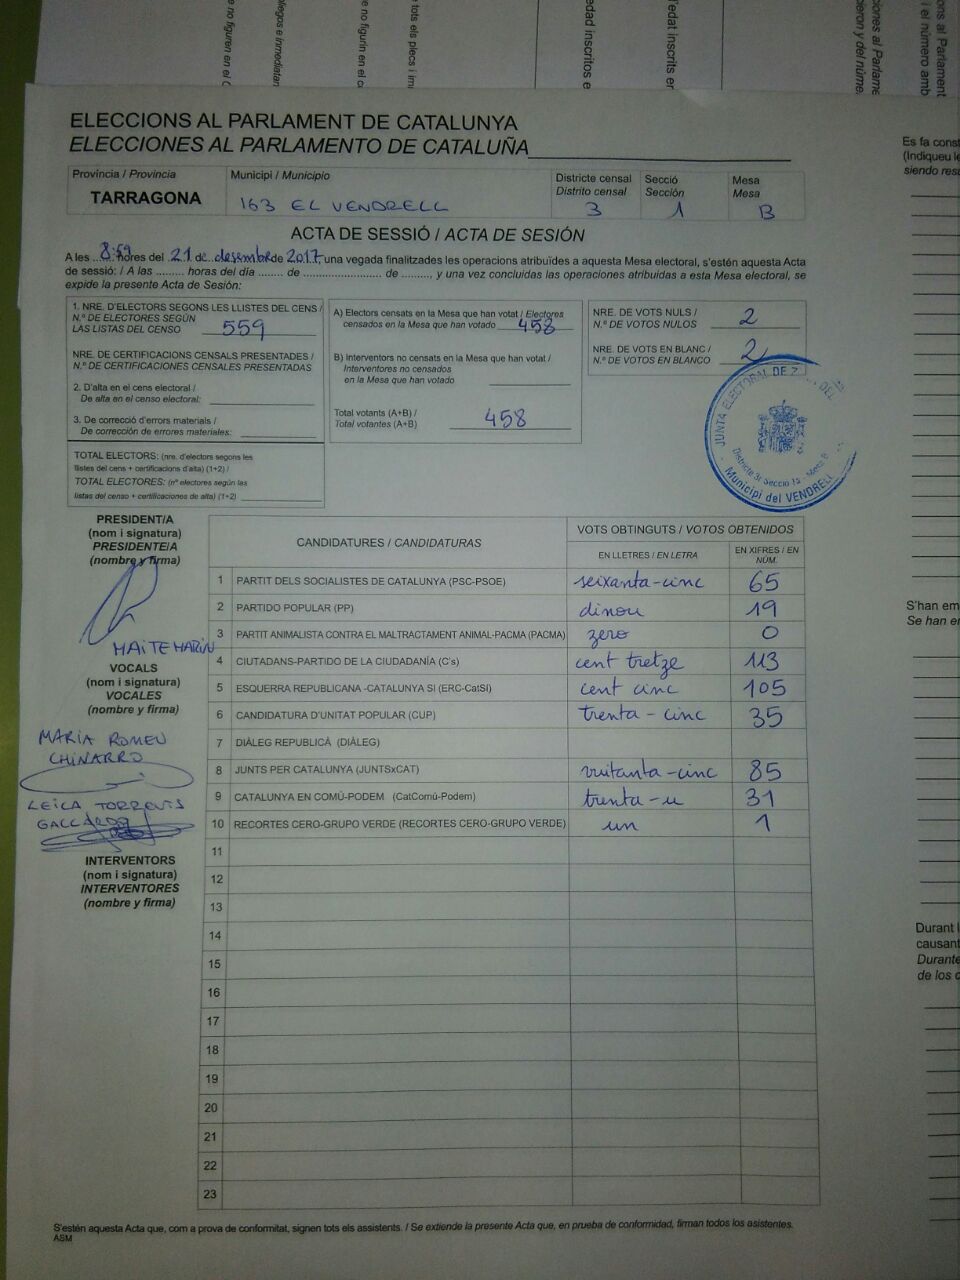 ELECCIONS AL PARLAMENT DE CATALUNYA
ELECCIONES AL PARLAMENTO DE CATALUÑA
Província / Provincia
TARRAGONA
Municipi / Municipio
163 EL VENDRELL
Districte censal
Distrito censal
3
Secció
Sección
1
Mesa
Mesa
B
ACTA DE SESSIÓ / ACTA DE SESIÓN
A les 8:59 hores del 21 de desembre de 2017, una vegada finalitzades les operacions atribuïdes a aquesta Mesa electoral, s'estén aquesta Acta
de sessió: / A las ......... horas del día ....... de ...................... de ........., y una vez concluidas las operaciones atribuidas a esta Mesa electoral, se
expide la presente Acta de Sesión:
1. NRE. D'ELECTORS SEGONS LES LLISTES DEL CENS /
N.º DE ELECTORES SEGÚN
LAS LISTAS DEL CENSO 559
NRE. DE CERTIFICACIONS CENSALS PRESENTADES /
N.º DE CERTIFICACIONES CENSALES PRESENTADAS
2. D'alta en el cens electoral /
De alta en el censo electoral:
3. De correcció d'errors materials /
De corrección de errores materiales:
TOTAL ELECTORS: (nre. d'electors segons les
llistes del cens + certificacions d'alta) (1+2) /
TOTAL ELECTORES: (nº electores según las
listas del censo + certificaciones de alta) (1+2)
A) Electors censats en la Mesa que han votat / Electores
censados en la Mesa que han votado 458
B) Interventors no censats en la Mesa que han votat /
Interventores no censados
en la Mesa que han votado
Total votants (A+B) /
Total votantes (A+B) 458
NRE. DE VOTS NULS /
N.º DE VOTOS NULOS 2
NRE. DE VOTS EN BLANC /
N.º DE VOTOS EN BLANCO 2
JUNTA ELECTORAL DE
Districte 3r Secció 1a Mesa B
Municipi del VENDRELL
PRESIDENT/A
(nom i signatura)
PRESIDENTE/A
(nombre y firma)
MAITE MARIN
VOCALS
(nom i signatura)
VOCALES
(nombre y firma)
MARIA ROMEU
CHINARRO
LEICA TORRENTS
GALLARDO
INTERVENTORS
(nom i signatura)
INTERVENTORES
(nombre y firma)
CANDIDATURES / CANDIDATURAS
VOTS OBTINGUTS / VOTOS OBTENIDOS
EN LLETRES / EN LETRA
EN XIFRES / EN
NÚM.
1 PARTIT DELS SOCIALISTES DE CATALUNYA (PSC-PSOE) seixanta-cinc 65
2 PARTIDO POPULAR (PP) dinou 19
3 PARTIT ANIMALISTA CONTRA EL MALTRACTAMENT ANIMAL-PACMA (PACMA) zero 0
4 CIUTADANS-PARTIDO DE LA CIUDADANÍA (C's) cent tretze 113
5 ESQUERRA REPUBLICANA -CATALUNYA SI (ERC-CatSÍ) cent cinc 105
6 CANDIDATURA D'UNITAT POPULAR (CUP) trenta-cinc 35
7 DIÀLEG REPUBLICÀ (DIÀLEG)
8 JUNTS PER CATALUNYA (JUNTSxCAT) vuitanta-cinc 85
9 CATALUNYA EN COMÚ-PODEM (CatComú-Podem) trenta-u 31
10 RECORTES CERO-GRUPO VERDE (RECORTES CERO-GRUPO VERDE) un 1
11
12
13
14
15
16
17
18
19
20
21
22
23
S'estén aquesta Acta que, com a prova de conformitat, signen tots els assistents. / Se extiende la presente Acta que, en prueba de conformidad, firman todos los asistentes.
ASM
Es fa const
(Indiqueu le
siendo resu
S'han em
Se han en
Durant l
causant
Durante
de los c